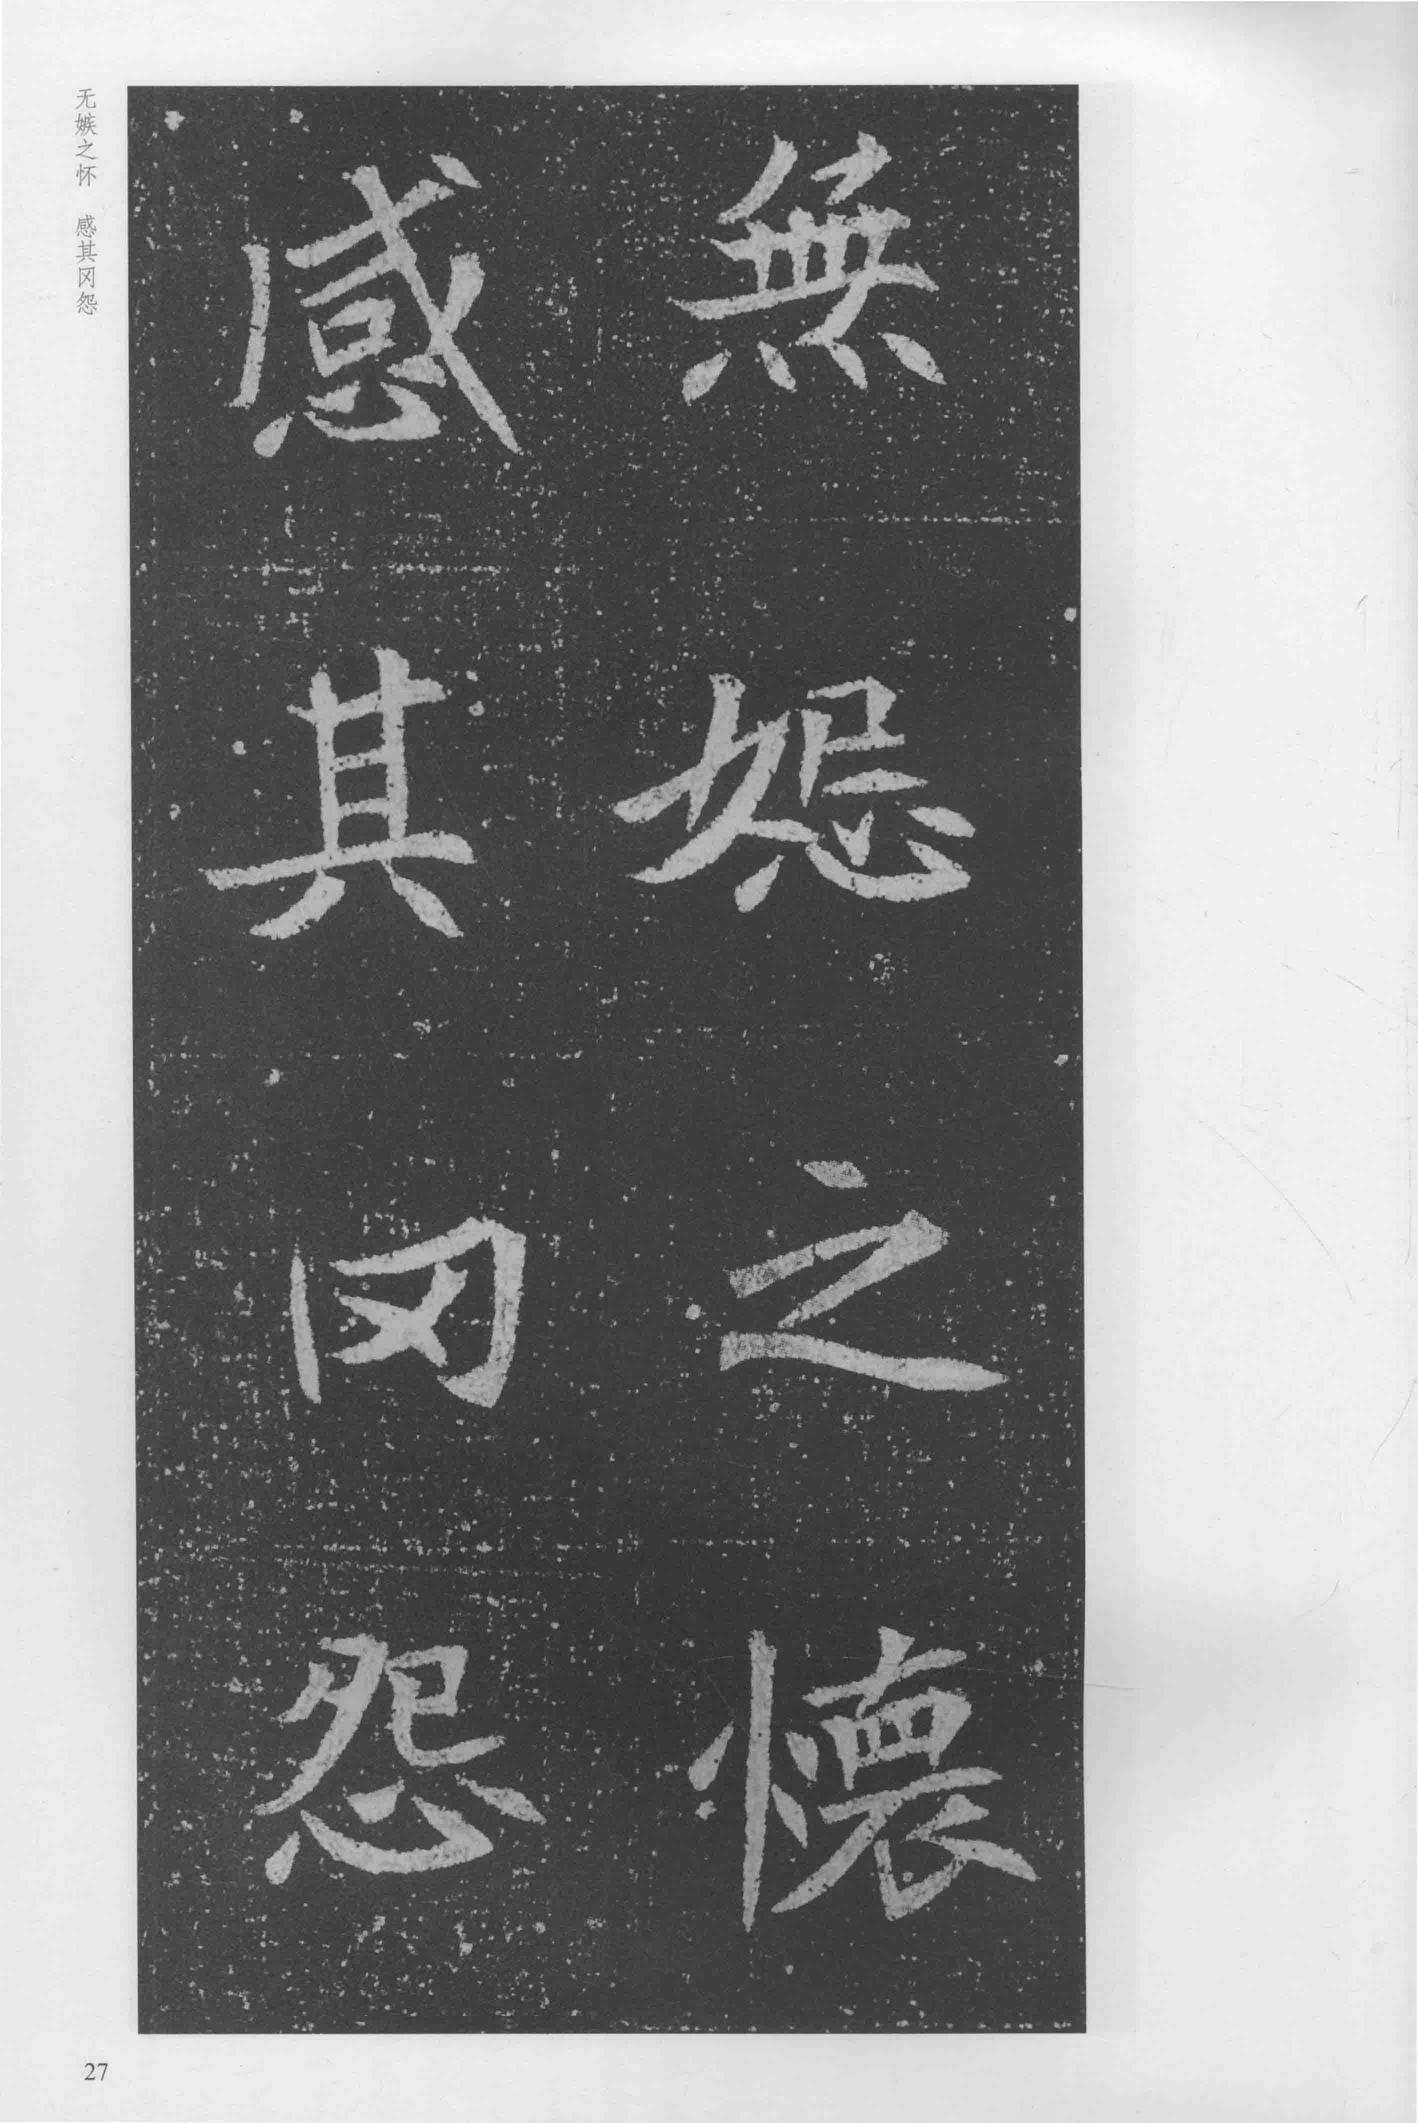 无嫉之怀 感其冈怨
無之懷
感其冈怨
27